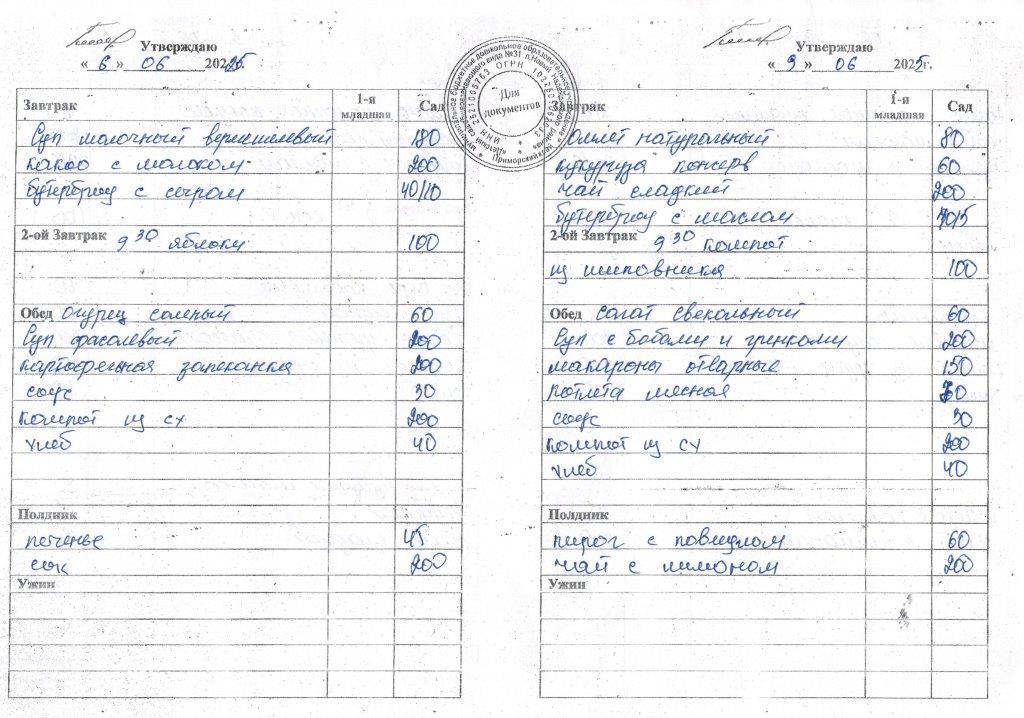 Утверждаю
« 6 » 06 2025г.
Завтрак 1-я младшая Сад
Суп молочный вермишелевый 180
какао с молоком 200
бутерброд с сыром 40/10
2-ой Завтрак 9 30 яблоки 100
Обед Огурец соленый 60
Суп фасолевый 200
картофельная запеканка 200
соус 30
компот из сх 200
хлеб 40
Полдник
печенье 45
сок 200
Ужин
Для документов
Утверждаю
« 9 » 06 2025г.
Завтрак 1-я младшая Сад
омлет натуральный 80
кукуруза консерв 60
чай сладкий 200
бутерброд с маслом
2-ой Завтрак 9 30 компот
из шиповника 100
Обед салат свекольный 60
Суп с бобами и гренками 200
макароны отварные 150
котлета мясная
соус 30
компот из сх 200
хлеб 40
Полдник
пирог с повидлом 60
чай с лимоном 200
Ужин